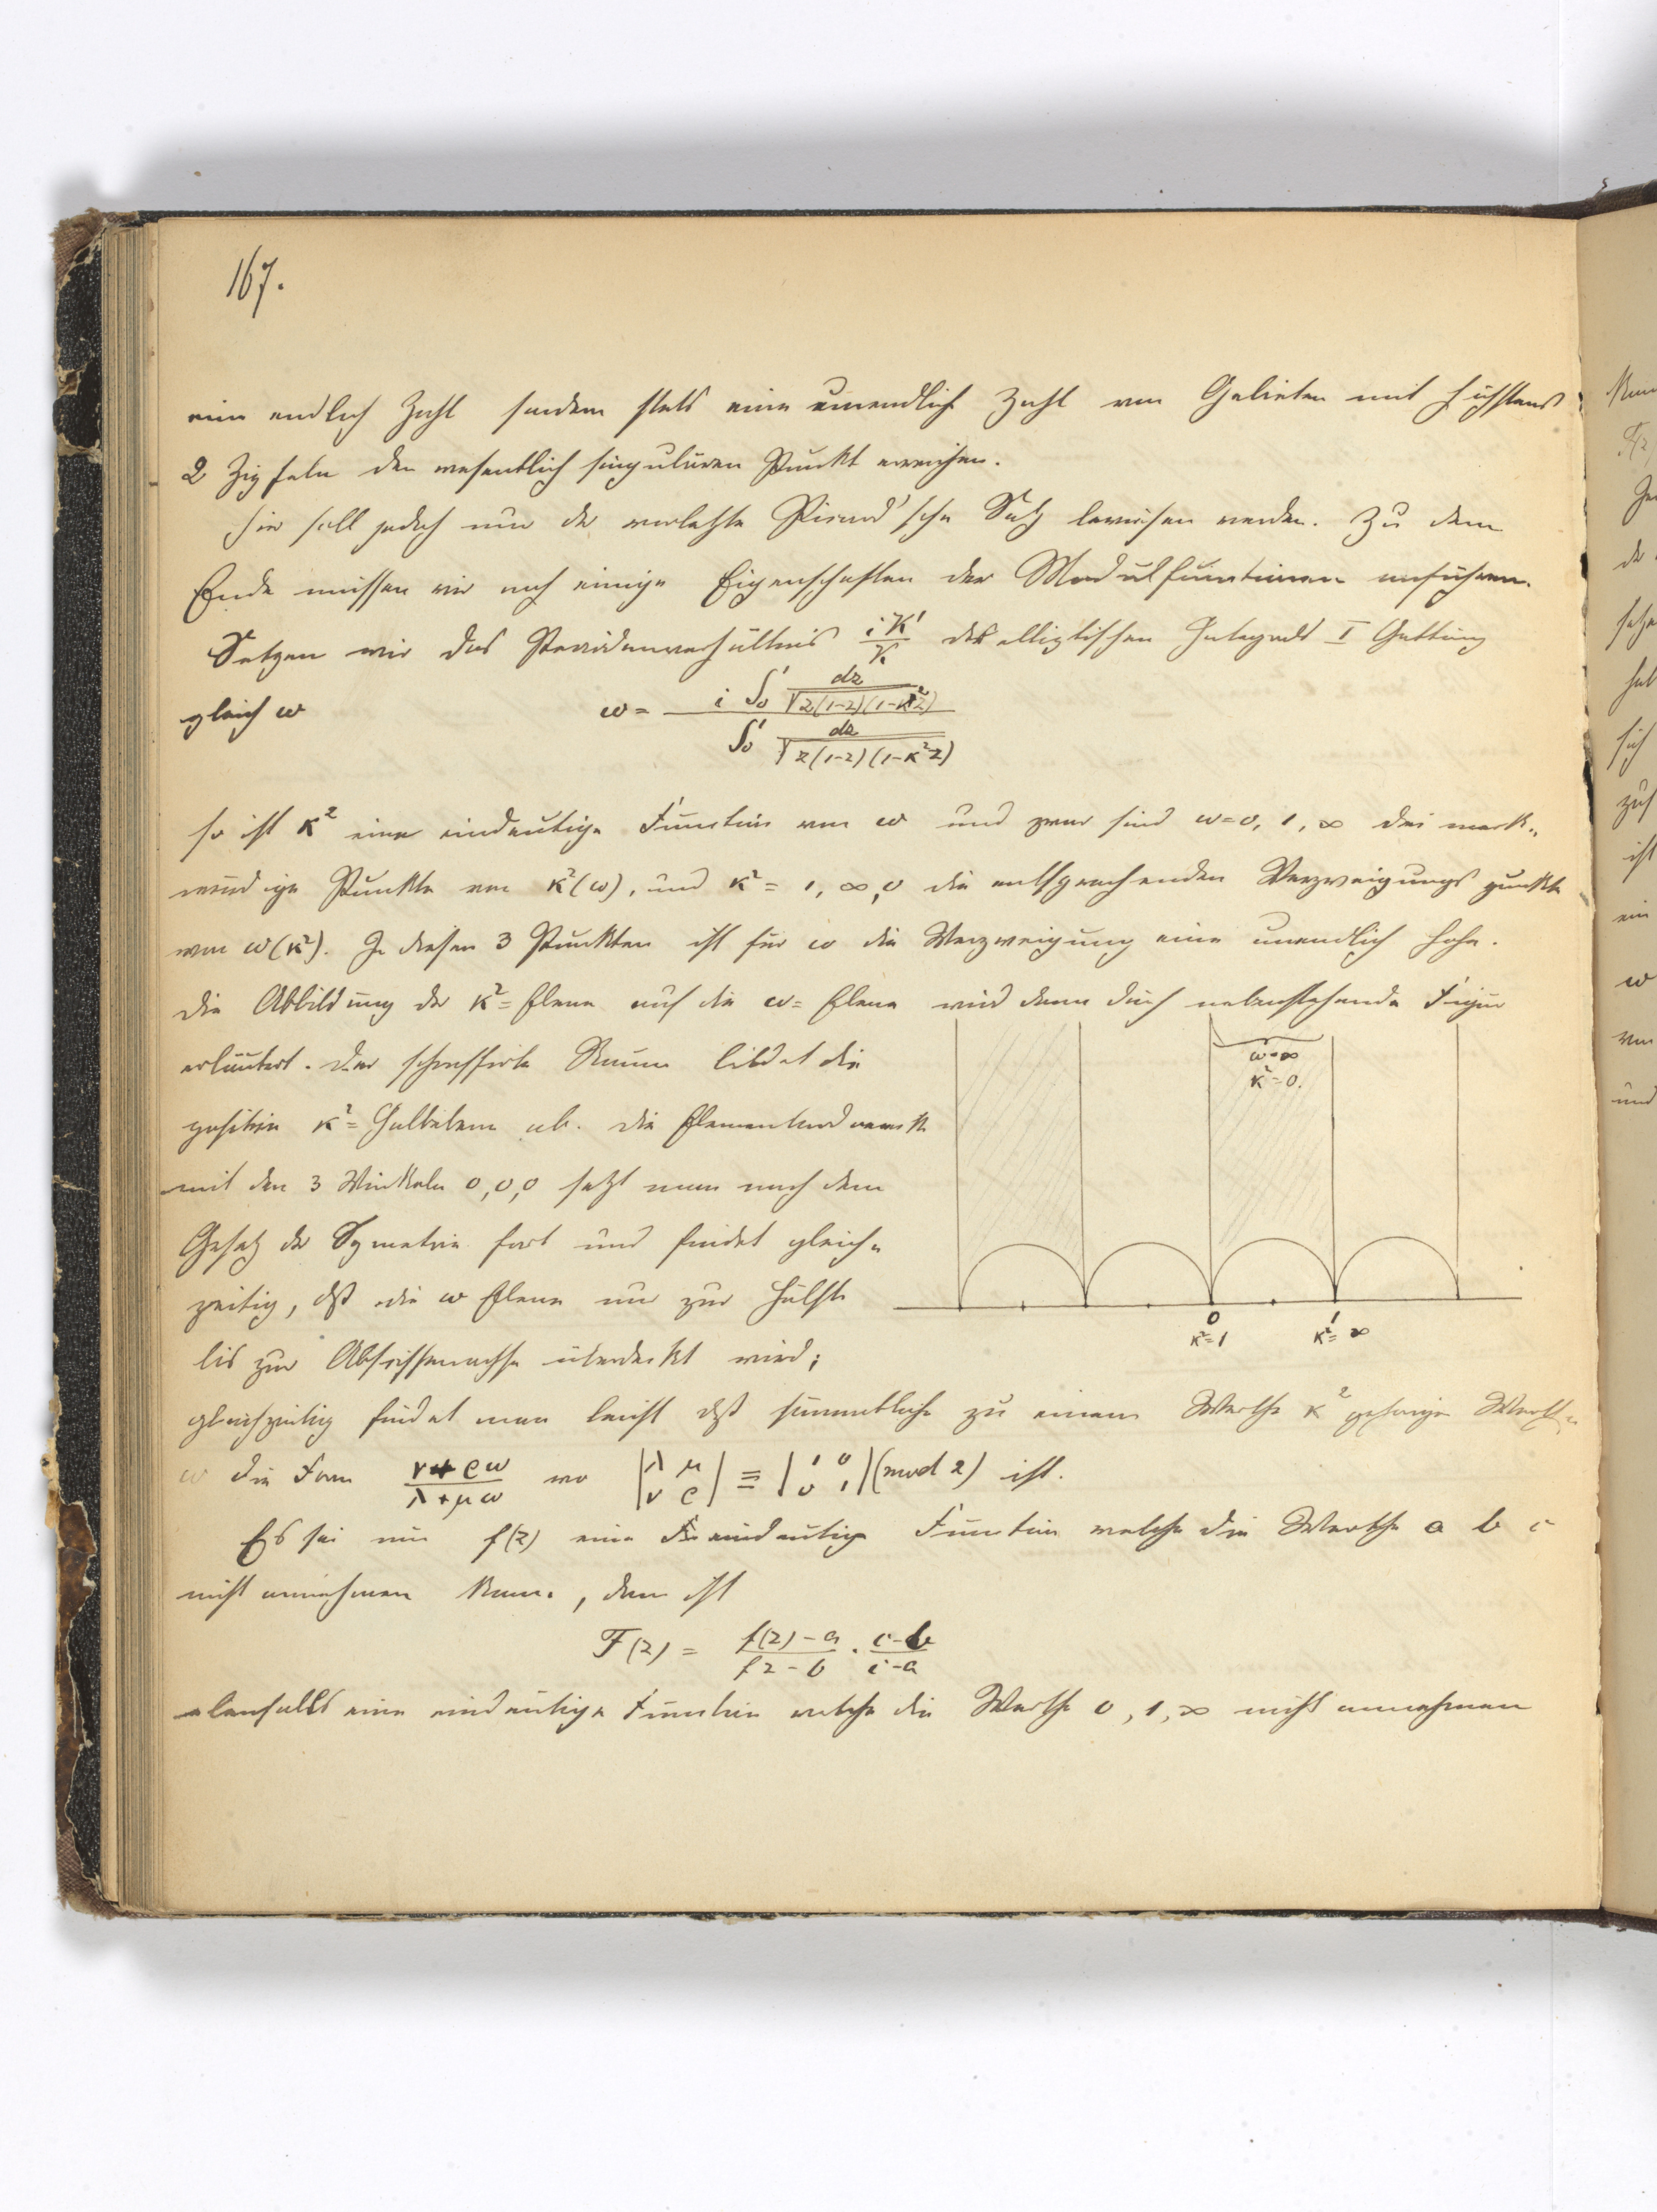 167.
eine endlich Zahl sondern stets eine unendliche Zahl von Gebieten mit höchstens
2 Zipfeln den wesentlich singulären Punkt erreichen.
Hier soll jedoch nur der vorletzte Picard'sche Satz bewiesen werden. Zu dem
Ende müssen wir noch einige Eigenschaften der Modulfunctionen anführen.
Setzen wir das Periodenverhältnis iK'/K des elliptischen Integrals I Gattung
gleich ω ω = i ∫₀¹ dz/√z(1-z)(1-k'²z) / ∫₀¹ dz/√z(1-z)(1-κ²z)
so ist κ² eine eindeutige Function von ω und zwar sind ω=0, 1, ∞ die merk-
würdige Punkte von κ²(ω), und κ² = 1, ∞, 0 die entsprechenden Verzweigungspunkte
von ω(κ²). In diesen 3 Punkten ist für ω die Verzweigung eine unendlich hohe.
Die Abbildung der κ²=Ebene auf die ω=Ebene wird dann durch nebenstehende Figur
erläutert. Der schraffirte Raum bildet die
ω=∞
κ²=0.
positive κ²=Halbebene ab. Die
mit den 3 Winkeln 0,0,0 setzt man nach dem
Gesetz der Symetrie fort und findet gleich-
zeitig, dß die ω Ebene nur zur Hälfte
0 1
κ²=1 κ²=∞
bis zur Abscissenachse überdeckt wird;
gleichzeitig findet man leicht dß sämmtliche zu einem Werthe κ² gehörige Werthe
ω die Form ν+ρω/λ+μω wo |λ μ ν ρ| ≡ |1 0 0 1| (mod 2) ist.
Es sei nun f(z) eine eindeutige Function welche die Werthe a b c
nicht annehmen kann, dann ist
F(z) = f(z)-a/fz-b · c-b/c-a
ebenfalls eine eindeutige Function welche die Werthe 0, 1, ∞ nicht annehmen